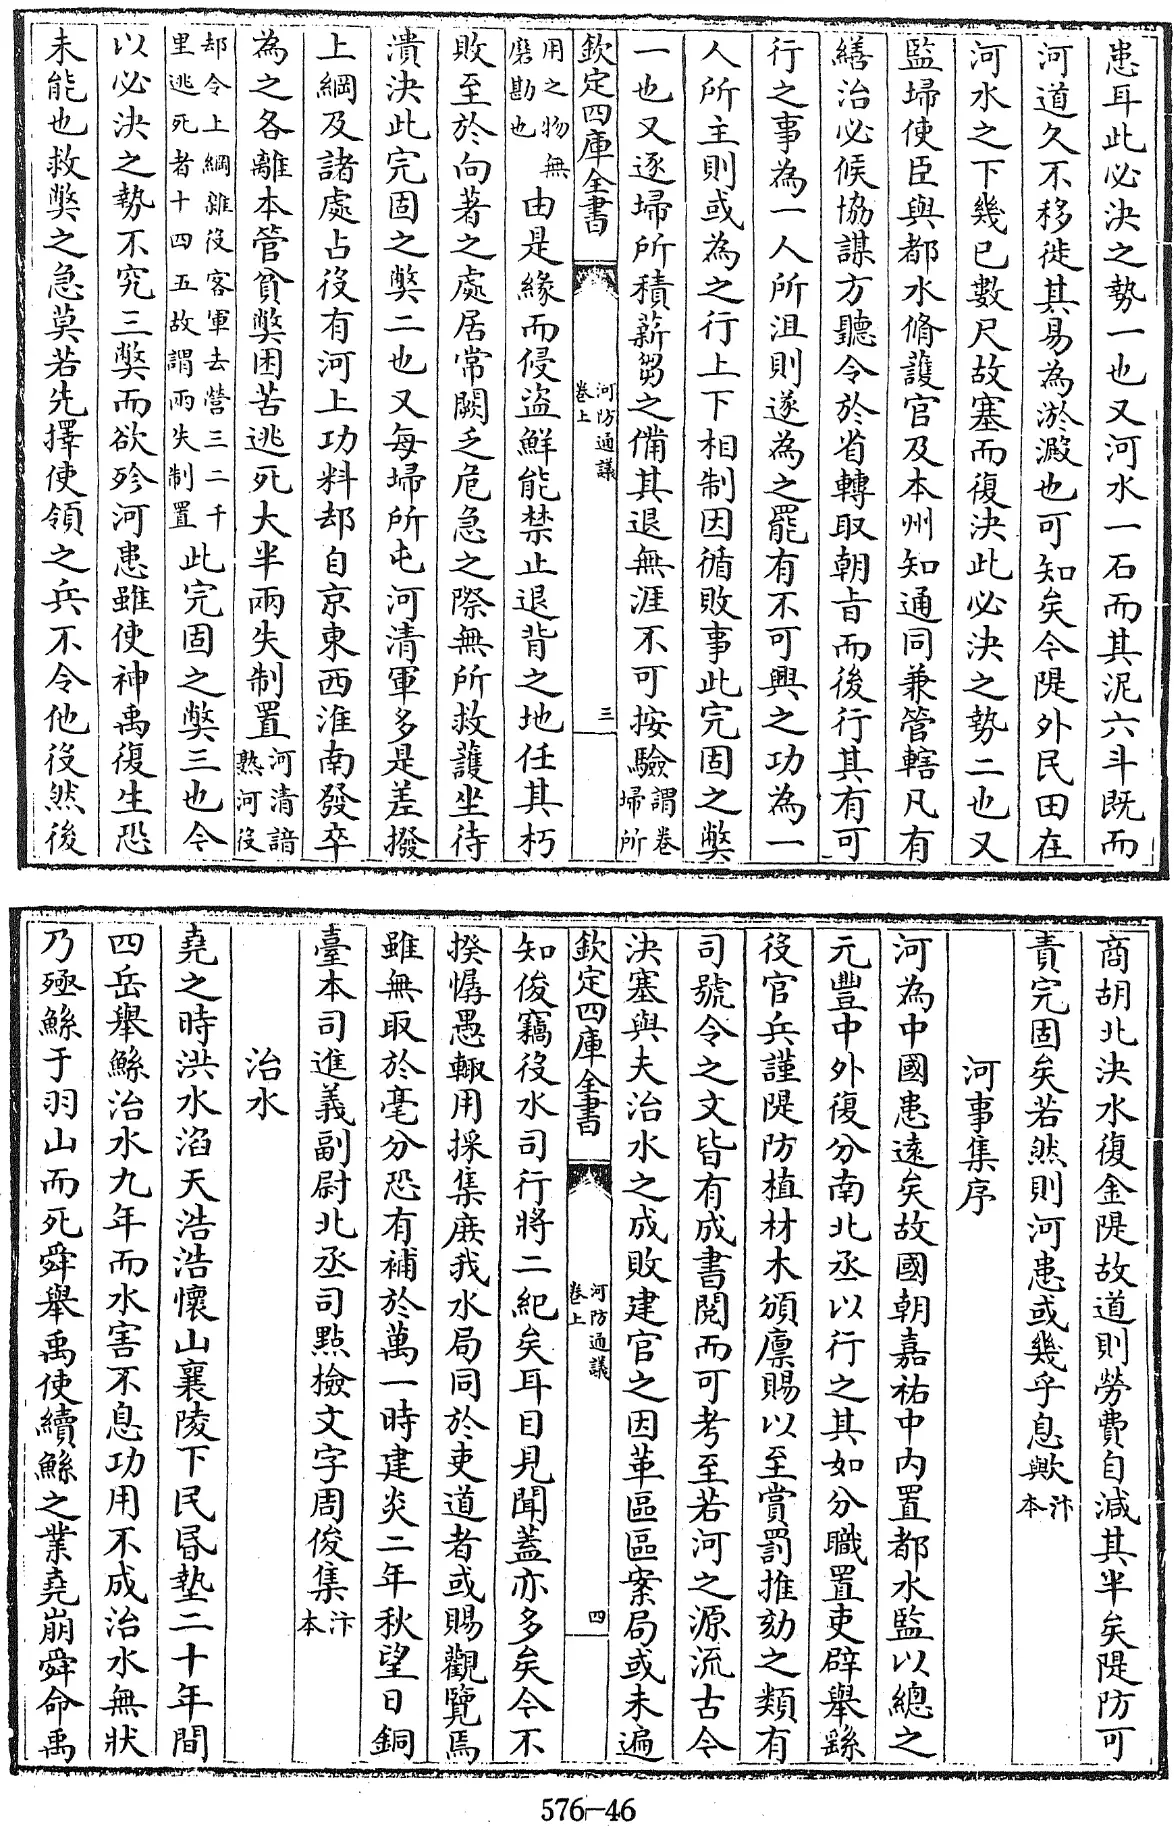 患耳此必決之勢一也又河水一石而其泥六斗既而
河道久不移徙其易為淤澱也可知矣今隄外民田在
河水之下幾已數尺故塞而復決此必決之勢二也又
監埽使臣與都水脩護官及本州知通同兼管轄凡有
繕治必候協謀方聽令於省轉取朝㫖而後行其有可
行之事為一人所沮則遂為之罷有不可興之功為一
人所主則或為之行上下相制因循敗事此完固之獘
一也又逐埽所積薪芻之備其退無涯不可按驗謂卷埽所
欽定四庫全書
河防通議
卷上
三
用之物無磨勘也由是緣而侵盜鮮能禁止退背之地任其朽
敗至於向著之處居常闕乏危急之際無所救護坐待
潰決此完固之獘二也又每埽所屯河清軍多是差撥
上綱及諸處占役有河上功料却自京東西淮南發卒
為之各離本管貧獘困苦逃死大半兩失制置河清諳熟河役
却令上綱雜役客軍去營三二千里逃死者十四五故謂兩失制置此完固之獘三也今
以必決之勢不究三獘而欲殄河患雖使神禹復生恐
未能也救獘之急莫若先擇使領之兵不令他役然後
商胡北決水復金隄故道則勞費自減其半矣隄防可
責完固矣若然則河患或幾乎息歟汴本
河事集序
河為中國患遠矣故國朝嘉祐中内置都水監以總之
元豐中外復分南北丞以行之其如分職置吏辟舉繇
役官兵謹隄防植材木頒廪賜以至賞罰推劾之類有
司號令之文皆有成書閲而可考至若河之源流古今
決塞與夫治水之成敗建官之因革區區案局或未遍
欽定四庫全書
河防通議
卷上
四
知俊竊役水司行將二紀矣耳目見聞蓋亦多矣今不
揆惷愚輙用採集庻我水局同於吏道者或賜觀覽焉
雖無取於毫分恐有補於萬一時建炎二年秋望日銅
臺本司進義副尉北丞司㸃檢文字周俊集汴本
治水
堯之時洪水滔天浩浩懷山襄陵下民昏墊二十年間
四岳舉鯀治水九年而水害不息功用不成治水無狀
乃殛鯀于羽山而死舜舉禹使續鯀之業堯崩舜命禹
576-46